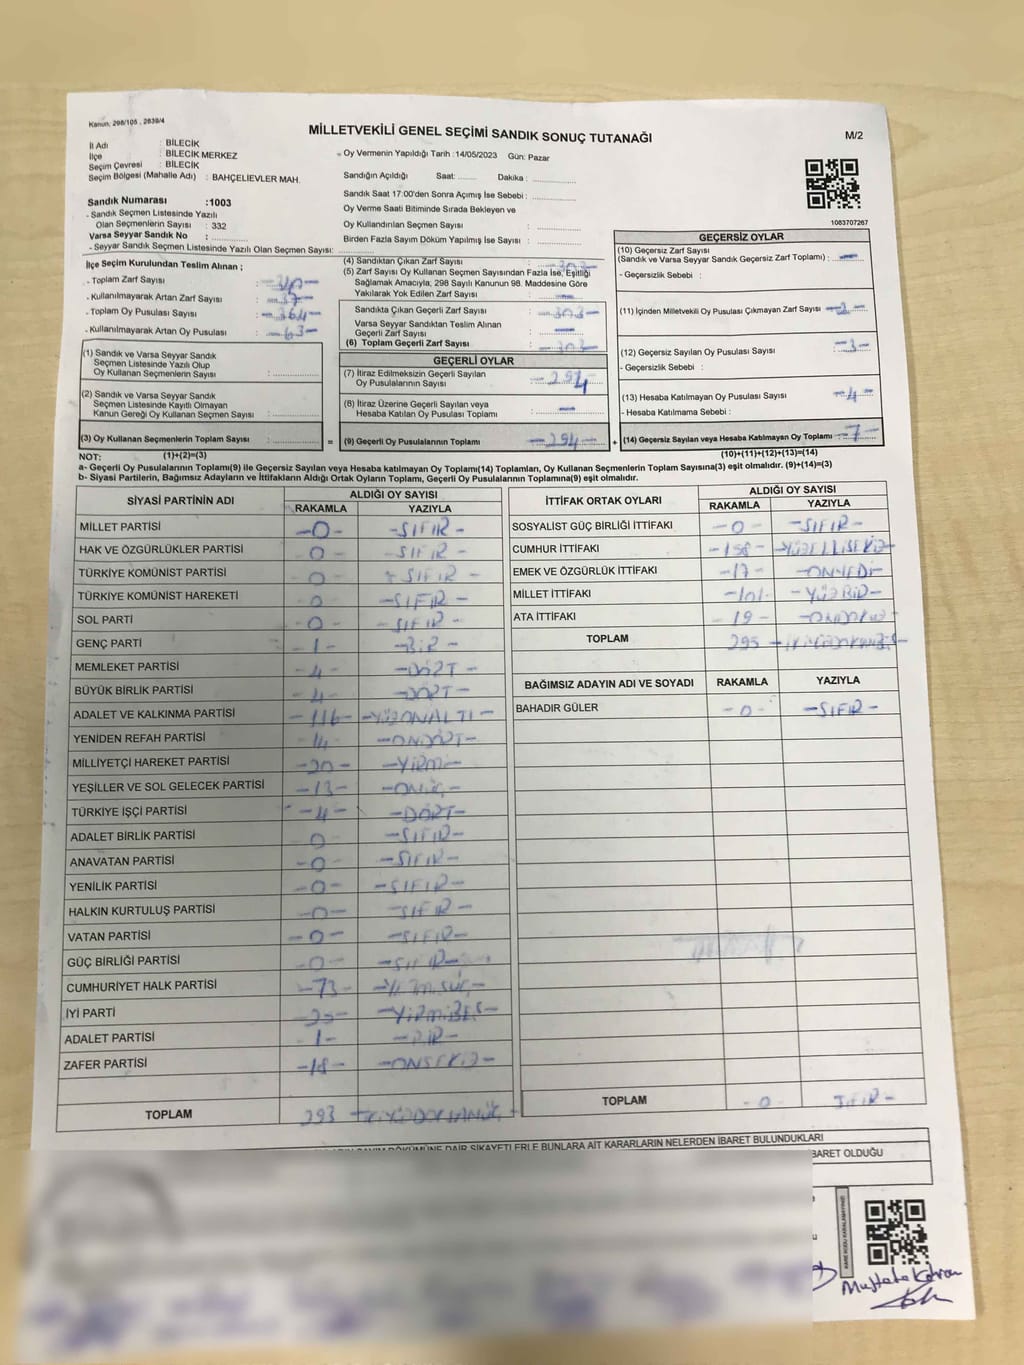 Kanun: 298/105 , 2839/4
MİLLETVEKİLİ GENEL SEÇİMİ SANDIK SONUÇ TUTANAĞI
M/2
İl Adı : BİLECİK
İlçe : BİLECİK MERKEZ
Seçim Çevresi : BİLECİK
Seçim Bölgesi (Mahalle Adı) : BAHÇELİEVLER MAH.
Oy Vermenin Yapıldığı Tarih : 14/05/2023 Gün: Pazar
Sandığın Açıldığı Saat: ........ Dakika : ................
Sandık Saat 17:00'den Sonra Açımış İse Sebebi : ................
Oy Verme Saati Bitiminde Sırada Bekleyen ve
Oy Kullandırılan Seçmen Sayısı : ................
Birden Fazla Sayım Döküm Yapılmış İse Sayısı : ................
1083707267
Sandık Numarası :1003
- Sandık Seçmen Listesinde Yazılı
Olan Seçmenlerin Sayısı : 332
Varsa Seyyar Sandık No : ................
- Seyyar Sandık Seçmen Listesinde Yazılı Olan Seçmen Sayısı: ................
İlçe Seçim Kurulundan Teslim Alınan ;
- Toplam Zarf Sayısı :
- Kullanılmayarak Artan Zarf Sayısı :
- Toplam Oy Pusulası Sayısı : -364-
- Kullanılmayarak Artan Oy Pusulası : -63-
(1) Sandık ve Varsa Seyyar Sandık
Seçmen Listesinde Yazılı Olup
Oy Kullanan Seçmenlerin Sayısı : ................
(2) Sandık ve Varsa Seyyar Sandık
Seçmen Listesinde Kayıtlı Olmayan
Kanun Gereği Oy Kullanan Seçmen Sayısı : ................
(3) Oy Kullanan Seçmenlerin Toplam Sayısı : ................ =
(4) Sandıktan Çıkan Zarf Sayısı : -303-
(5) Zarf Sayısı Oy Kullanan Seçmen Sayısından Fazla İse, Eşitliği
Sağlamak Amacıyla, 298 Sayılı Kanunun 98. Maddesine Göre
Yakılarak Yok Edilen Zarf Sayısı : -
Sandıkta Çıkan Geçerli Zarf Sayısı : -303-
Varsa Seyyar Sandıktan Teslim Alınan
Geçerli Zarf Sayısı : -
(6) Toplam Geçerli Zarf Sayısı : -303-
GEÇERLİ OYLAR
(7) İtiraz Edilmeksizin Geçerli Sayılan
Oy Pusulasının Sayısı : -294
(8) İtiraz Üzerine Geçerli Sayılan veya
Hesaba Katılan Oy Pusulası Toplamı : -
(9) Geçerli Oy Pusulalarının Toplamı : -294- +
GEÇERSİZ OYLAR
(10) Geçersiz Zarf Sayısı
(Sandık ve Varsa Seyyar Sandık Geçersiz Zarf Toplamı) : -
- Geçersizlik Sebebi :
(11) İçinden Milletvekili Oy Pusulası Çıkmayan Zarf Sayısı :
(12) Geçersiz Sayılan Oy Pusulası Sayısı : -3-
- Geçersizlik Sebebi :
(13) Hesaba Katılmayan Oy Pusulası Sayısı : -4-
- Hesaba Katılmama Sebebi :
(14) Geçersiz Sayılan veya Hesaba Katılmayan Oy Toplamı : -7-
NOT: (1)+(2)=(3) (10)+(11)+(12)+(13)=(14)
a- Geçerli Oy Pusulalarının Toplamı(9) ile Geçersiz Sayılan veya Hesaba katılmayan Oy Toplamı(14) Toplamları, Oy Kullanan Seçmenlerin Toplam Sayısına(3) eşit olmalıdır. (9)+(14)=(3)
b- Siyasi Partilerin, Bağımsız Adayların ve İttifakların Aldığı Ortak Oyların Toplamı, Geçerli Oy Pusulalarının Toplamına(9) eşit olmalıdır.
SİYASİ PARTİNİN ADI ALDIĞI OY SAYISI
RAKAMLA YAZIYLA
MİLLET PARTİSİ -0- -SIFIR-
HAK VE ÖZGÜRLÜKLER PARTİSİ -0- -SIFIR-
TÜRKİYE KOMÜNİST PARTİSİ -0- -SIFIR-
TÜRKİYE KOMÜNİST HAREKETİ -0- -SIFIR-
SOL PARTİ -0- -SIFIR-
GENÇ PARTİ -1- -BİR-
MEMLEKET PARTİSİ -4- -DÖRT-
BÜYÜK BİRLİK PARTİSİ -4- -DÖRT-
ADALET VE KALKINMA PARTİSİ -116- -YÜZONALTI-
YENİDEN REFAH PARTİSİ -14- -ONDÖRT-
MİLLİYETÇİ HAREKET PARTİSİ -20- -YİRMİ-
YEŞİLLER VE SOL GELECEK PARTİSİ -13- -ONÜÇ-
TÜRKİYE İŞÇİ PARTİSİ -4- -DÖRT-
ADALET BİRLİK PARTİSİ -0- -SIFIR-
ANAVATAN PARTİSİ -0- -SIFIR-
YENİLİK PARTİSİ -0- -SIFIR-
HALKIN KURTULUŞ PARTİSİ -0- -SIFIR-
VATAN PARTİSİ -0- -SIFIR-
GÜÇ BİRLİĞİ PARTİSİ -0- -SIFIR-
CUMHURİYET HALK PARTİSİ -73-
İYİ PARTİ -25- -YİRMİBEŞ-
ADALET PARTİSİ -1- -BİR-
ZAFER PARTİSİ -18- -ONSEKİZ-
TOPLAM 293
İTTİFAK ORTAK OYLARI ALDIĞI OY SAYISI
RAKAMLA YAZIYLA
SOSYALİST GÜÇ BİRLİĞİ İTTİFAKI -0- -SIFIR-
CUMHUR İTTİFAKI -158- -YÜZELLİSEKİZ-
EMEK VE ÖZGÜRLÜK İTTİFAKI -17- -ONYEDİ-
MİLLET İTTİFAKI -101- -YÜZBİR-
ATA İTTİFAKI -19- -ONDOKUZ
TOPLAM 295
BAĞIMSIZ ADAYIN ADI VE SOYADI RAKAMLA YAZIYLA
BAHADIR GÜLER -0- -SIFIR-
TOPLAM -0- SIFIR-
DÖKÜMÜNE DAİR ŞİKAYETLERLE BUNLARA AİT KARARLARIN NELERDEN İBARET BULUNDUKLARI
BARET OLDUĞU
KARE KODU KARALAMAYINIZ!
Mustafa